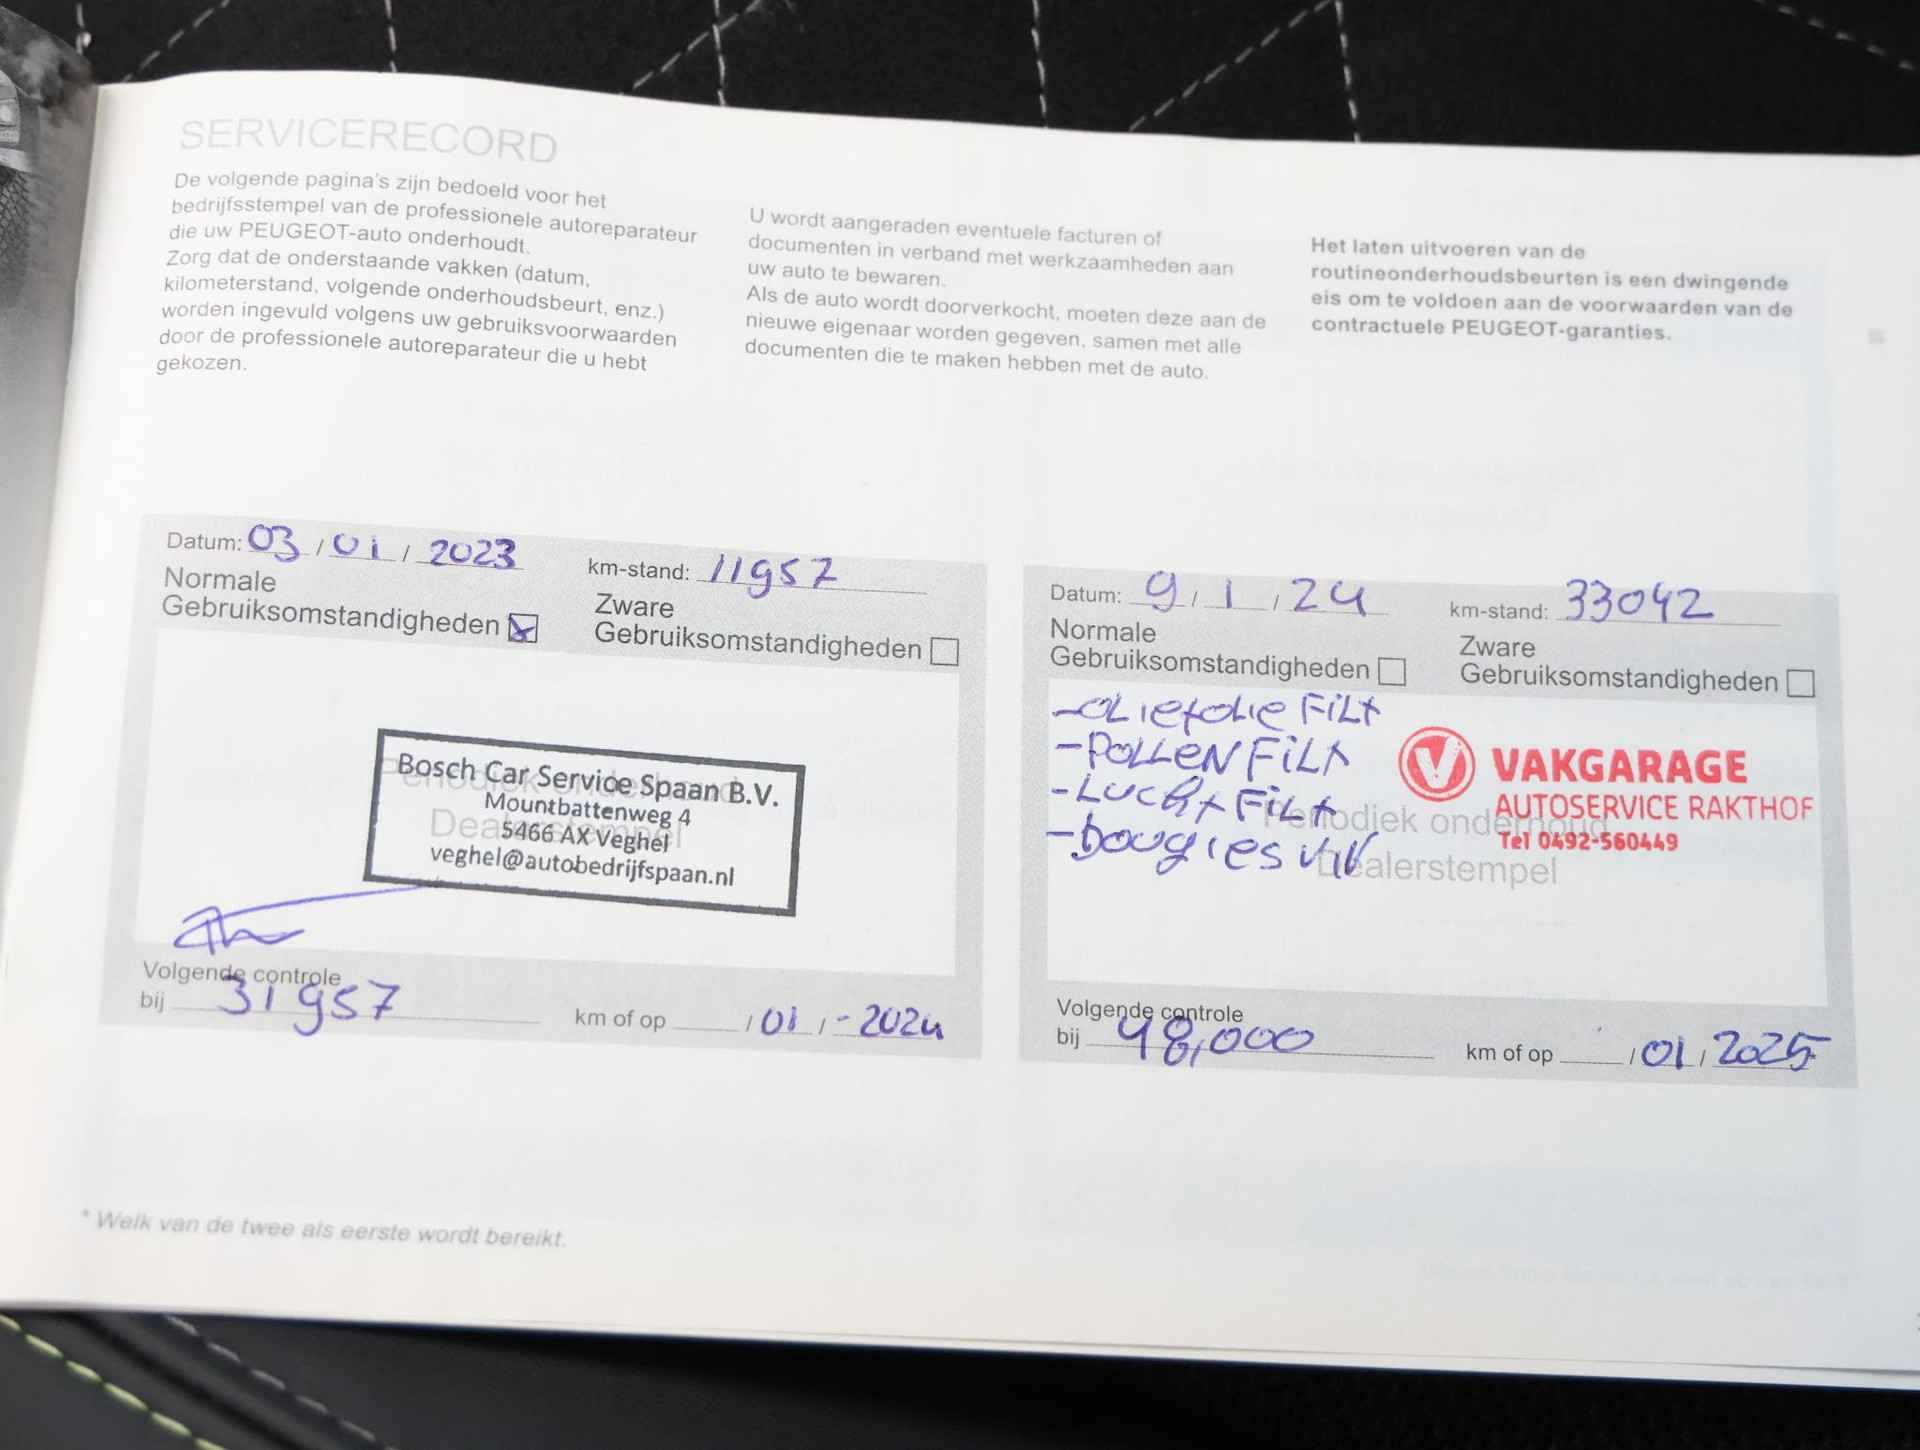 SERVICERECORD
De volgende pagina's zijn bedoeld voor het
bedrijfsstempel van de professionele autoreparateur
die uw PEUGEOT-auto onderhoudt.
Zorg dat de onderstaande vakken (datum,
kilometerstand, volgende onderhoudsbeurt, enz.)
worden ingevuld volgens uw gebruiksvoorwaarden
door de professionele autoreparateur die u hebt
gekozen.
U wordt aangeraden eventuele facturen of
documenten in verband met werkzaamheden aan
uw auto te bewaren.
Als de auto wordt doorverkocht, moeten deze aan de
nieuwe eigenaar worden gegeven, samen met alle
documenten die te maken hebben met de auto.
Het laten uitvoeren van de
routineonderhoudsbeurten is een dwingende
eis om te voldoen aan de voorwaarden van de
contractuele PEUGEOT-garanties.
Datum: 03 / 01 / 2023 km-stand: 11957
Normale
Gebruiksomstandigheden
Zware
Gebruiksomstandigheden
Periodiek onderhoud
Dealerstempel
Bosch Car Service Spaan B.V.
Mountbattenweg 4
5466 AX Veghel
veghel@autobedrijfspaan.nl
Volgende controle
bij 31957 km of op / 01 / - 2024
Datum: 9 / 1 / 24 km-stand: 33042
Normale
Gebruiksomstandigheden
Zware
Gebruiksomstandigheden
- olie+olie Filt
- Pollen Filt
- Lucht Filt
- bougies
Periodiek onderhoud
Dealerstempel
VAKGARAGE
AUTOSERVICE RAKTHOF
Tel 0492-560449
Volgende controle
bij 48,000 km of op / 01 / 2025
* Welk van de twee als eerste wordt bereikt.